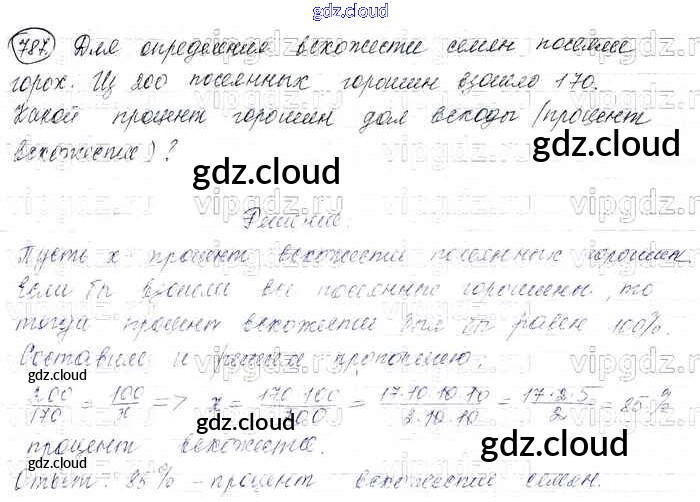 gdz.cloud
787. Для определения всхожести семян посеяли
горох. Из 200 посеянных горошин взошло 170.
Какой процент горошин дал всходы (процент
всхожести)?
gdz.cloud
gdz.cloud
Решение.
Пусть x - процент всхожести посеянных горошин.
Если бы взошли все посеянные горошины, то
тогда процент всхожести был бы равен 100%.
Составим и решим пропорцию:
gdz.cloud
gdz.cloud
200/170 = 100/x => x = 170·100/200 = 17·10·10·10/2·10·10 = 17·2·5/2 = 85%
процент всхожести.
gdz.cloud
gdz.cloud
Ответ: 85% - процент всхожести семян.